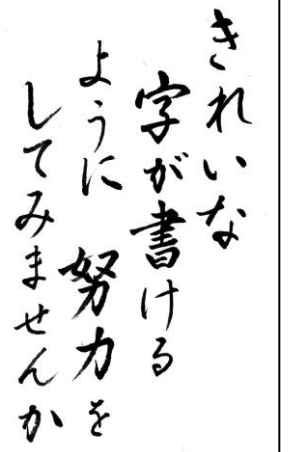 きれいな
字が書ける
ように 努力を
してみませんか